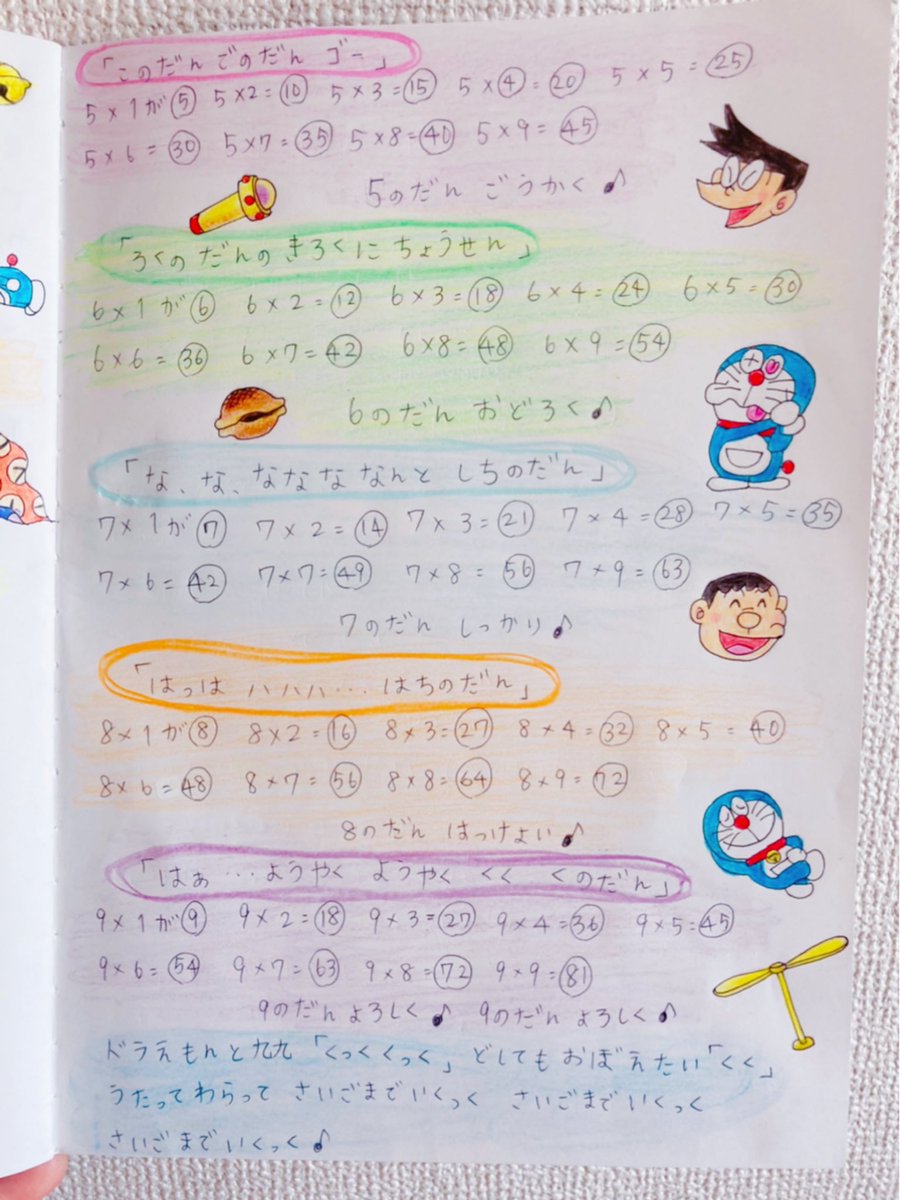 「このだん ごのだん ゴー」
5×1が⑤ 5×2=⑩ 5×3=⑮ 5×④=⑳ 5×5=㉕
5×6=㉚ 5×7=㉟ 5×8=㊵ 5×9=㊺
5のだん ごうかく♪
「ろくのだんのきろくに ちょうせん」
6×1が⑥ 6×2=⑫ 6×3=⑱ 6×4=㉔ 6×5=㉚
6×6=㊱ 6×7=㊷ 6×8=㊽ 6×9=54
6のだん おどろく♪
「な、な、ななな なんと しちのだん」
7×1が⑦ 7×2=⑭ 7×3=㉑ 7×4=㉘ 7×5=㉟
7×6=㊷ 7×7=㊾ 7×8=56 7×9=63
7のだん しっかり♪
「はっは ハハハ… はちのだん」
8×1が⑧ 8×2=⑯ 8×3=㉗ 8×4=㉜ 8×5=㊵
8×6=㊽ 8×7=56 8×8=64 8×9=72
8のだん はっけよい♪
「はぁ…ようやく ようやく くく くのだん」
9×1が⑨ 9×2=⑱ 9×3=㉗ 9×4=㊱ 9×5=㊺
9×6=54 9×7=63 9×8=72 9×9=81
9のだん よろしく♪ 9のだん よろしく♪
ドラえもんと九九「くっくくっく」どしてもおぼえたい「くく」
うたってわらって さいごまでいくっく さいごまでいくっく
さいごまでいくっく♪